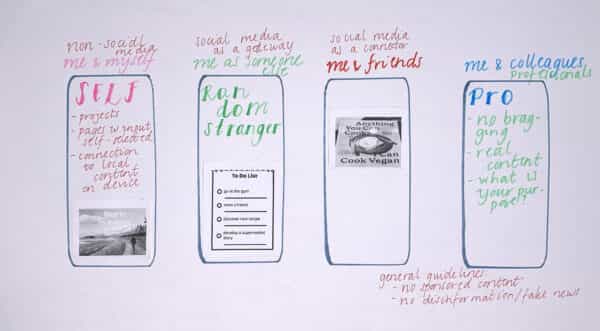 non-social
media
me & myself
SELF
- projects
- pages w input,
self-selected
- connection
to local
content
on device
social media
as a gateway
me as someone
else
Ran
dom
stranger
To Do List
go to the gym
meet a friend
discover new recipe
develop a supermodel
story
social media
as a connector
me & friends
Anything
You Can
Cook
I Can
Cook Vegan
me & colleagues,
professionals
Pro
- no brag-
ging
- real
content
- what is
your pur-
pose?
general guidelines:
- no sponsored content
- no disinformation/fake news